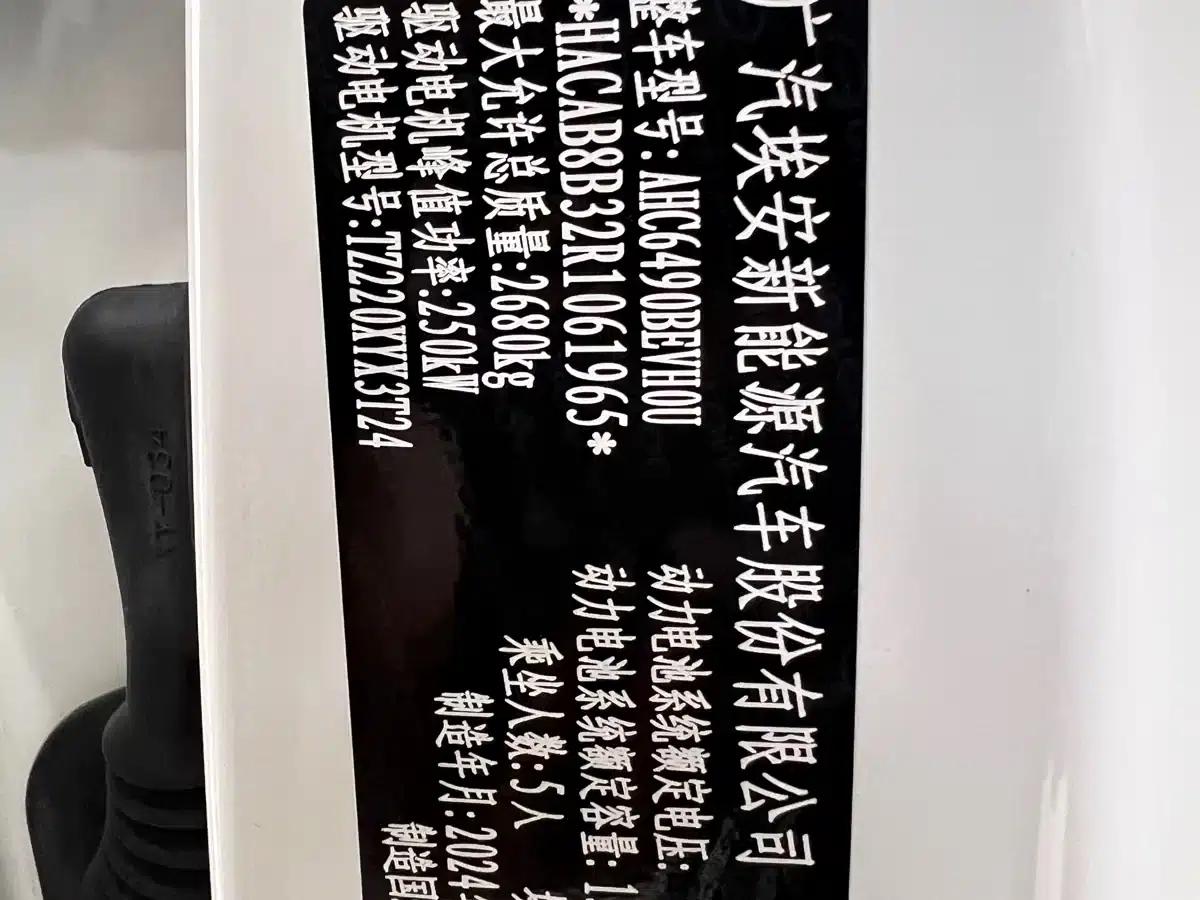 广汽埃安新能源汽车股份有限公司
整车型号:AHC6490BEVH0U
动力电池系统额定电压:
*HACAB8B32R1061965*
动力电池系统额定容量:1
最大允许总质量:2680kg
乘坐人数:5人
驱动电机峰值功率:250kW
制造年月:2024
驱动电机型号:TZ220XYX3T24
制造国
LT-034